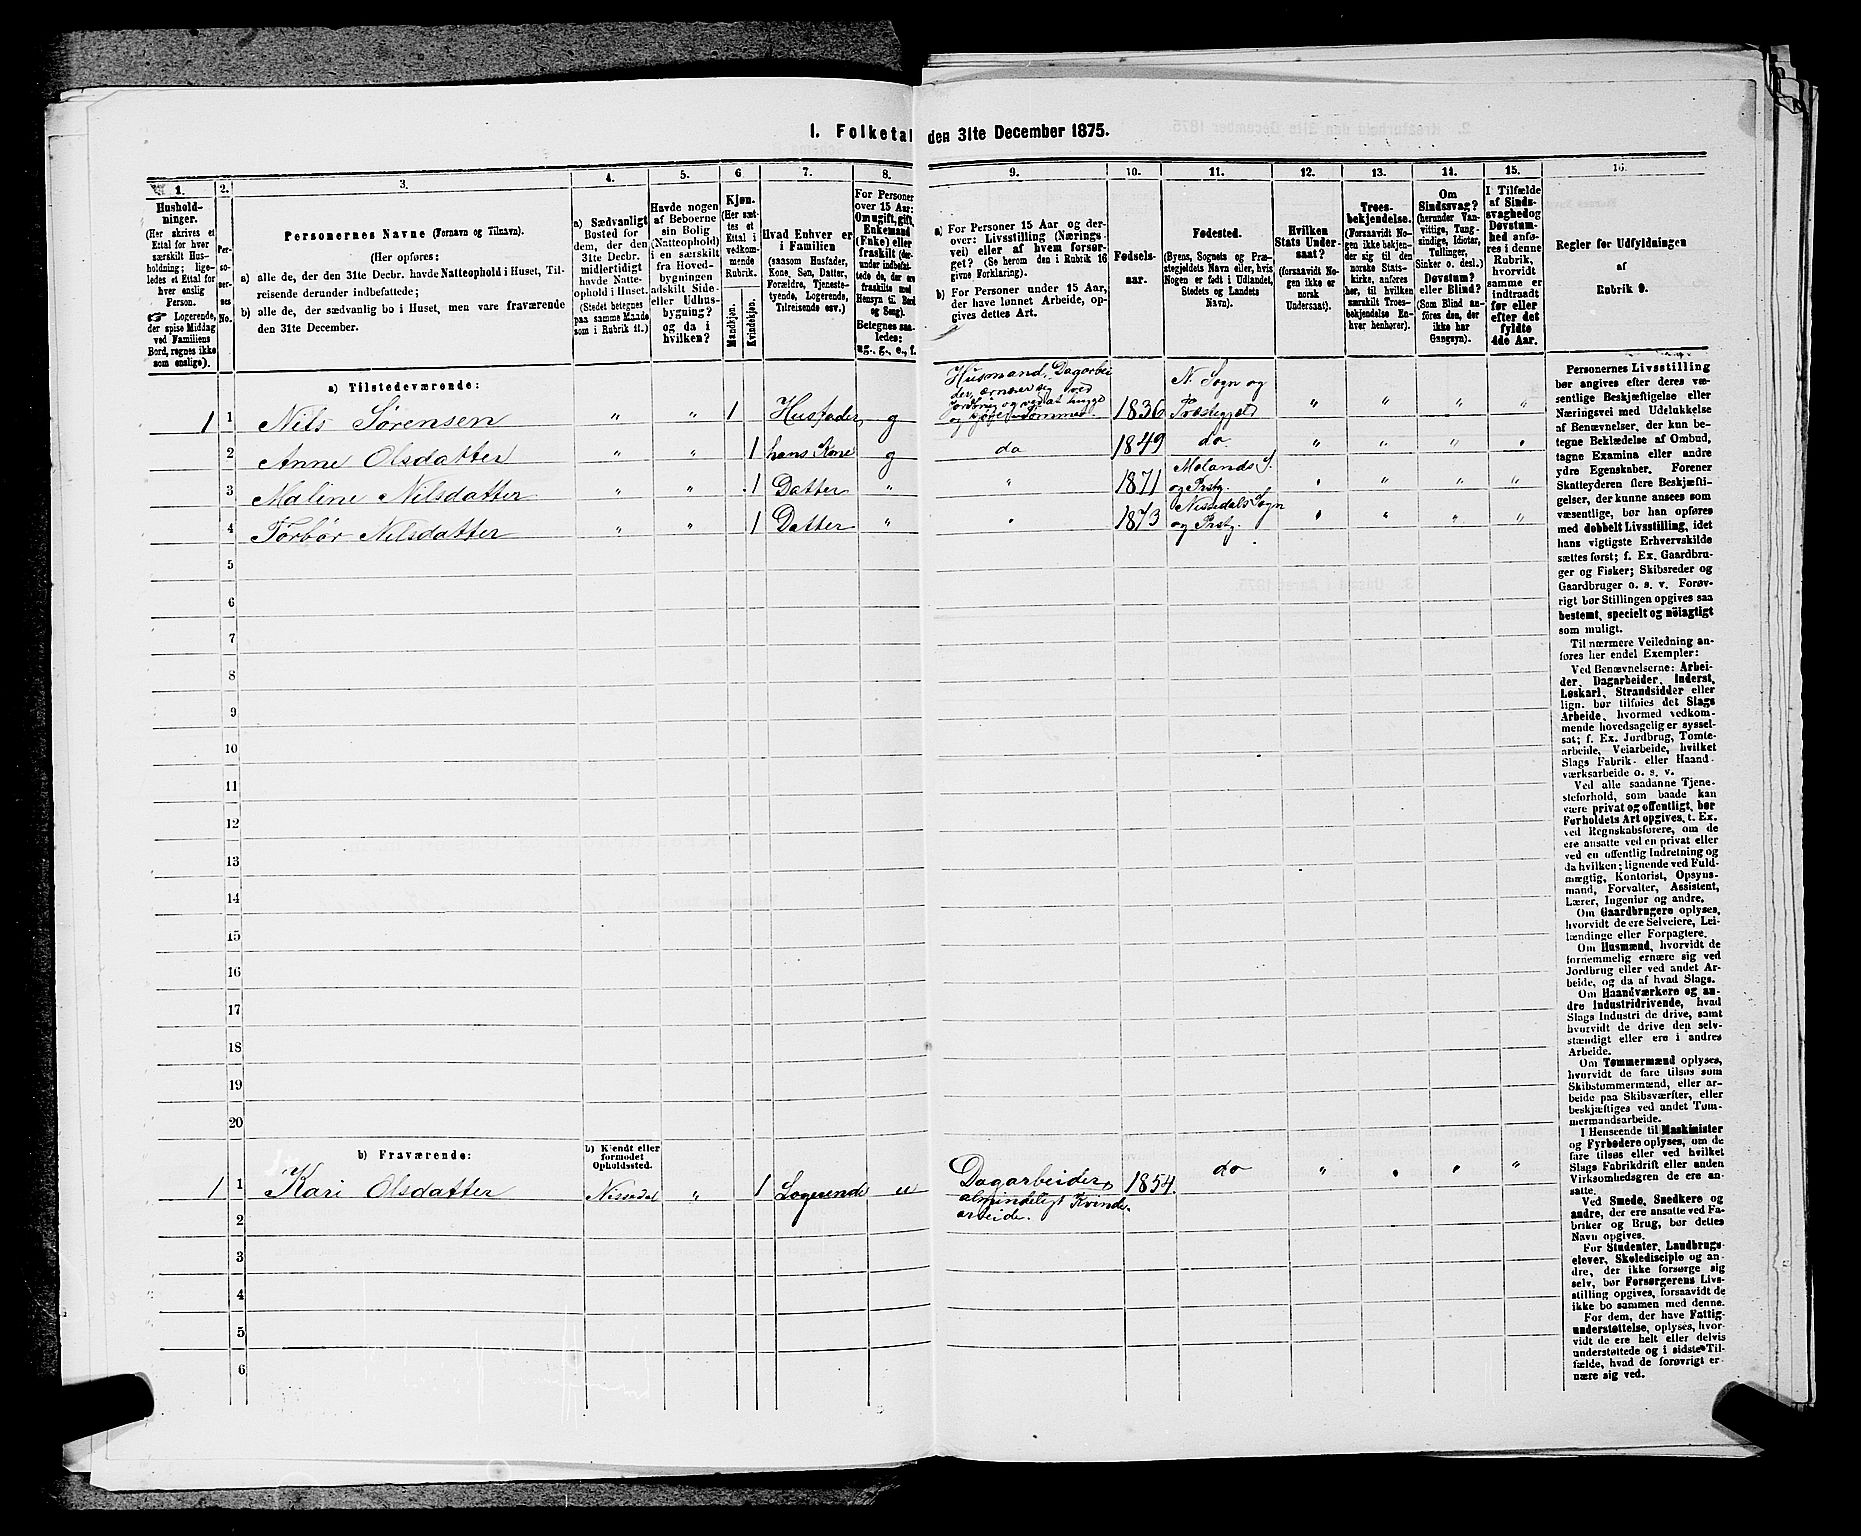 1. Folketal den 31te December 1875.
1. 2. 3. 4. 5. 6 7. 8. 9. 10. 11. 12. 13. 14. 15. 16.
Hushold-
ninger.
(Her skrives et
Ettal for hver
særskilt Hus-
holdning; lige-
ledes et Ettal for
hver enslig
Person.
☞ Logerende,
der spise Middag
ved Familiens
Bord, regnes ikke
som enslige).
Per-
so-
ner-
nes
No.
Personernes Navne (Fornavn og Tilnavn).
(Her opføres:
a) alle de, der den 31te Decbr. havde Natteophold i Huset, Til-
reisende derunder indbefattede;
b) alle de, der sædvanlig bo i Huset, men vare fraværende
den 31te December.
a) Sædvanligt
Bosted for
dem, der den
31te Decbr.
midlertidigt
havde Natte-
ophold i Huset
(Stedet betegnes
paa samme Maade
som i Rubrik 11.)
Havde nogen
af Beboerne
sin Bolig
(Natteophold)
i en særskilt
fra Hoved-
bygningen
adskilt Side-
eller Udhus-
bygning?
og da i
hvilken?
Kjøn.
(Her sæt-
tes et
Ettal i
vedkom-
mende
Rubrik.
Mandkjøn.
Kvindekjøn.
Hvad Enhver er
i Familien
(saasom Husfader,
Kone, Søn, Datter,
Forældre, Tjeneste-
tyende, Logerende,
Tilreisende osv.)
For Personer
over 15 Aar:
Om ugift, gift,
Enkemand
(Enke) eller
fraskilt (der-
under indbefat-
tede de, der ere
fraskilte med
Hensyn til Bord
og Seng).
Betegnes saa-
ledes:
ug., g., e., f.
a) For Personer 15 Aar og der-
over: Livsstilling (Nærings-
vei) eller af hvem forsør-
get? (Se herom den i Rubrik 16
givne Forklaring).
b) For Personer under 15 Aar,
der have lønnet Arbeide, op-
gives dettes Art.
Fødsels-
aar.
Fødested.
(Byens, Sognets og Præ-
stegjeldets Navn eller, hvis
Nogen er født i Udlandet,
Stedets og Landets
Navn).
Hvilken
Stats Under-
saat?
(forsaavidt No-
gen ikke er
norsk
Undersaat).
Troes-
bekjendelse.
(Forsaavidt Nogen
ikke bekjen-
der sig til den
norske Stats-
kirke, anføres
her, til hvilken
særskilt Troes-
bekjendelse En-
hver henhører).
Om
Sindssvag?
(herunder Van-
vittige, Tung-
sindige, Idioter,
Tullinger,
Sinker o. desl.)
Døvstum?
eller Blind?
(Som Blind an-
føres den, der
ikke har
Gangsyn).
I Tilfælde
af Sinds-
svaghed og
Døvstum-
hed anfø-
res i denne
Rubrik,
hvorvidt
samme er
indtraadt
før eller
efter det
fyldte
4de Aar.
Regler for Udfyldningen
af
Rubrik 9.
a) Tilstedeværende:
1 1 Nils Sørensen " " 1 Husfader g Husmand, Dagarbei
der, ernærer sig ved
Jordbrug og ved at hugge
og Tømmer. 1836 N. Sogn og
Præstegjeld " " " "
2 Anne Olsdatter " " 1 hans Kone g do 1849 do. " " " "
3 Maline Nilsdatter " " 1 Datter " " 1871 Molands S.
og Prstg. " " " "
4 Torbør Nilsdatter " " 1 Datter " " 1873 Nissedals Sogn
og Prstg. " " " "
5
6
7
8
9
10
11
12
13
14
15
16
17
18
19
20
b) Fraværende:
b) Kjendt eller
formodet
Opholdssted.
1 1 Kari Olsdatter Nissedal " 1 Logerende u Dagarbeider,
almindeligt Kvinde-
arbeide. 1854. do " " " "
2
3
4
5
6
Personernes Livsstilling
bør angives efter deres væ-
sentlige Beskjæftigelse eller
Næringsvei med Udelukkelse
af Benævnelser, der kun be-
tegne Beklædelse af Ombud,
tagne Examina eller andre
ydre Egenskaber. Forener
Skatteyderen flere Beskjæfti-
gelser, der kunne ansees som
væsentlige, bør han opføres
med dobbelt Livsstilling, idet
hans vigtigste Erhvervskilde
sættes først; f. Ex. Gaardbru-
ger og Fisker; Skibsreder og
Gaardbruger o. s. v. Forøv-
rigt bør Stillingen opgives saa
bestemt, specielt og nöiagtigt
som muligt.
Til nærmere Veiledning an-
føres her endel Exempler:
Ved Benævnelserne: Arbei-
der, Dagarbeider, Inderst,
Løskarl, Strandsidder eller
lign. bør tilføies det Slags
Arbeide, hvormed vedkom-
mende hovedsagelig er syssel-
sat; f. Ex. Jordbrug, Tomte-
arbeide, Veiarbeide, hvilket
Slags Fabrik- eller Haand-
værksarbeide o. s. v.
Ved alle saadanne Tjene-
steforhold, som baade kan
være privat og offentligt, bør
Forholdets Art opgives, t. Ex.
ved Regnskabsførere, om de
ere ansatte ved en privat eller
ved en offentlig Indretning og
da hvilken; lignende ved Fuld-
mægtig, Kontorist, Opsyns-
mand, Forvalter, Assistent,
Lærer, Ingeniør og andre.
Om Gaardbrugere oplyses,
hvorvidt de ere Selveiere, Lei-
lændinge eller Forpagtere.
Om Husmænd, hvorvidt de
fornemmelig ernære sig ved
Jordbrug eller ved andet Ar-
beide, og da af hvad Slags.
Om Haandværkere og an-
dre Industridrivende, hvad
Slags Industri de drive, samt
hvorvidt de drive den selv-
stændigt eller ere i andres
Arbeide.
Om Tømmermænd oplyses,
hvorvidt de fare tilsøs som
Skibstømmermænd, eller ar-
beide paa Skibsværfter, eller
beskjæftiges ved andet Tøm-
mermandsarbeide.
I Henseende til Maskinister
og Fyrbødere oplyses, om de
fare tilsøs eller ved hvilket
Slags Fabrikdrift eller anden
Virksomhedsgren de ere an-
satte.
Ved Smede, Snedkere og
andre, der ere ansatte ved Fa-
briker og Brug, bør dettes
Navn opgives.
For Studenter, Landbrugs-
elever, Skoledisciple og an-
dre, der ikke forsørge sig
selv, bør Forsørgerens Livs-
stilling opgives, forsaavidt de
ikke bo sammen med denne.
For dem, der have Fattig-
understøttelse, oplyses, hvor-
vidt de ere helt eller delvis
understøttede og i sidste Til-
fælde, hvad de forøvrigt er-
nære sig ved.